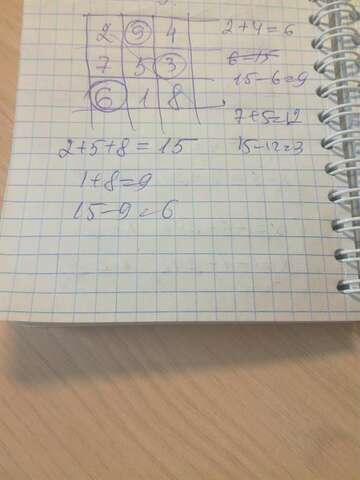 2 9 4
7 5 3
6 1 8
2+4=6
6=15
15-6=9
7+5=12
15-12=3
2+5+8=15
1+8=9
15-9=6